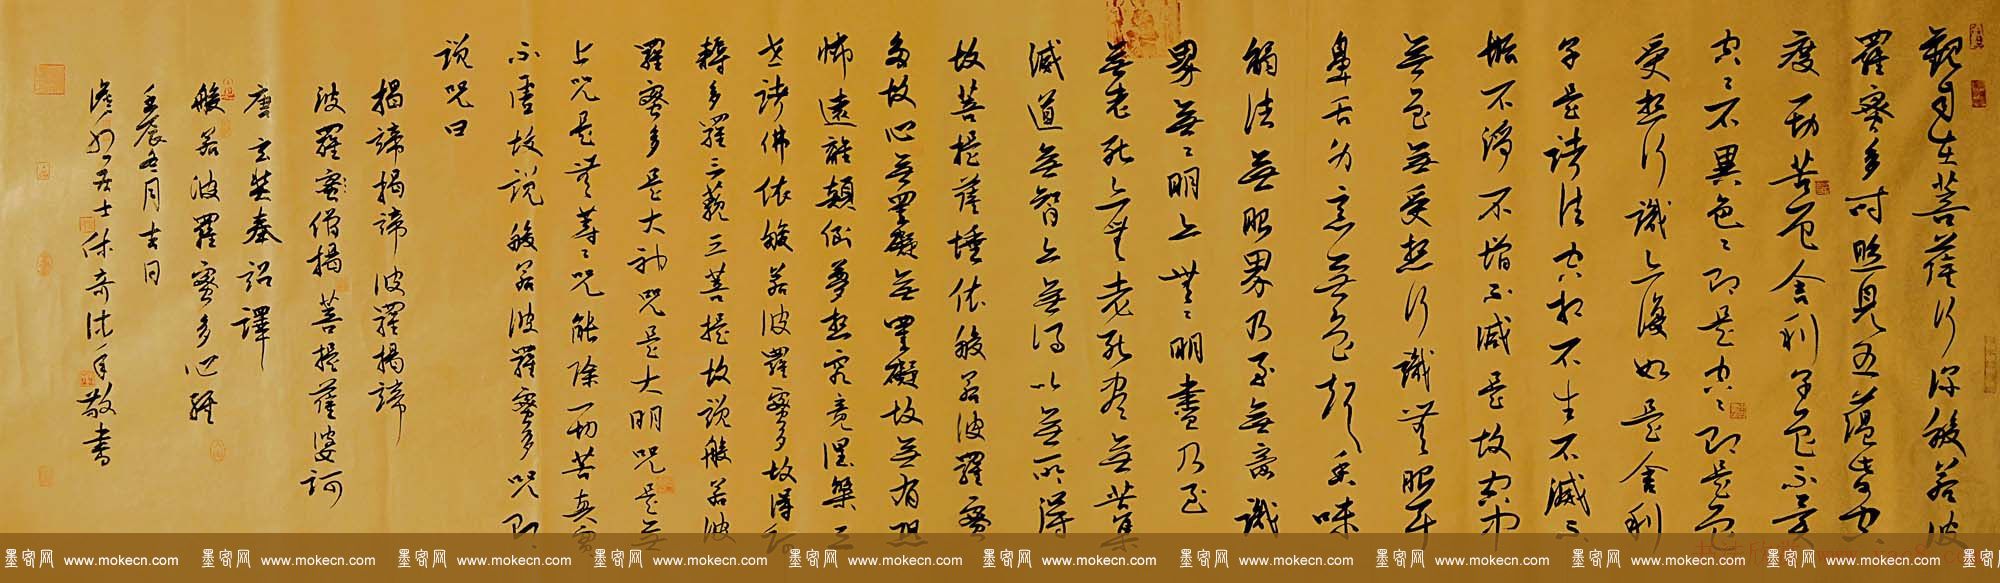 觀自在菩薩行深般若波
羅蜜多時照見五蘊皆空
度一切苦厄舍利子色不異
空空不異色色即是空空即是色
受想行識亦復如是舍利
子是諸法空相不生不滅不
垢不淨不增不減是故空中
無色無受想行識無眼耳
鼻舌身意無色聲香味
觸法無眼界乃至無意識
界無無明亦無無明盡乃至
無老死亦無老死盡無苦集
滅道無智亦無得以無所得
故菩提薩埵依般若波羅蜜
多故心無罣礙無罣礙故無有恐
怖遠離顛倒夢想究竟涅槃三
世諸佛依般若波羅蜜多故得阿
耨多羅三藐三菩提故說般若波
羅蜜多是大神咒是大明咒是無
上咒是無等等咒能除一切苦真實
不虛故說般若波羅蜜多咒即
說咒曰
揭諦揭諦波羅揭諦
波羅僧揭諦菩提薩婆訶
唐玄奘奉詔譯
般若波羅蜜多心經
壬辰冬月吉日
居士 沐手敬書
墨客网 www.mokecn.com 墨客网 www.mokecn.com 墨客网 www.mokecn.com 墨客网 www.mokecn.com 墨客网 www.mokecn.com 墨客网 www.mokecn.com 墨客网 www.mokecn.com 墨客网 www.mokecn.com 墨客网 www.mokecn.com 墨客网 www.mokecn.com 墨客网